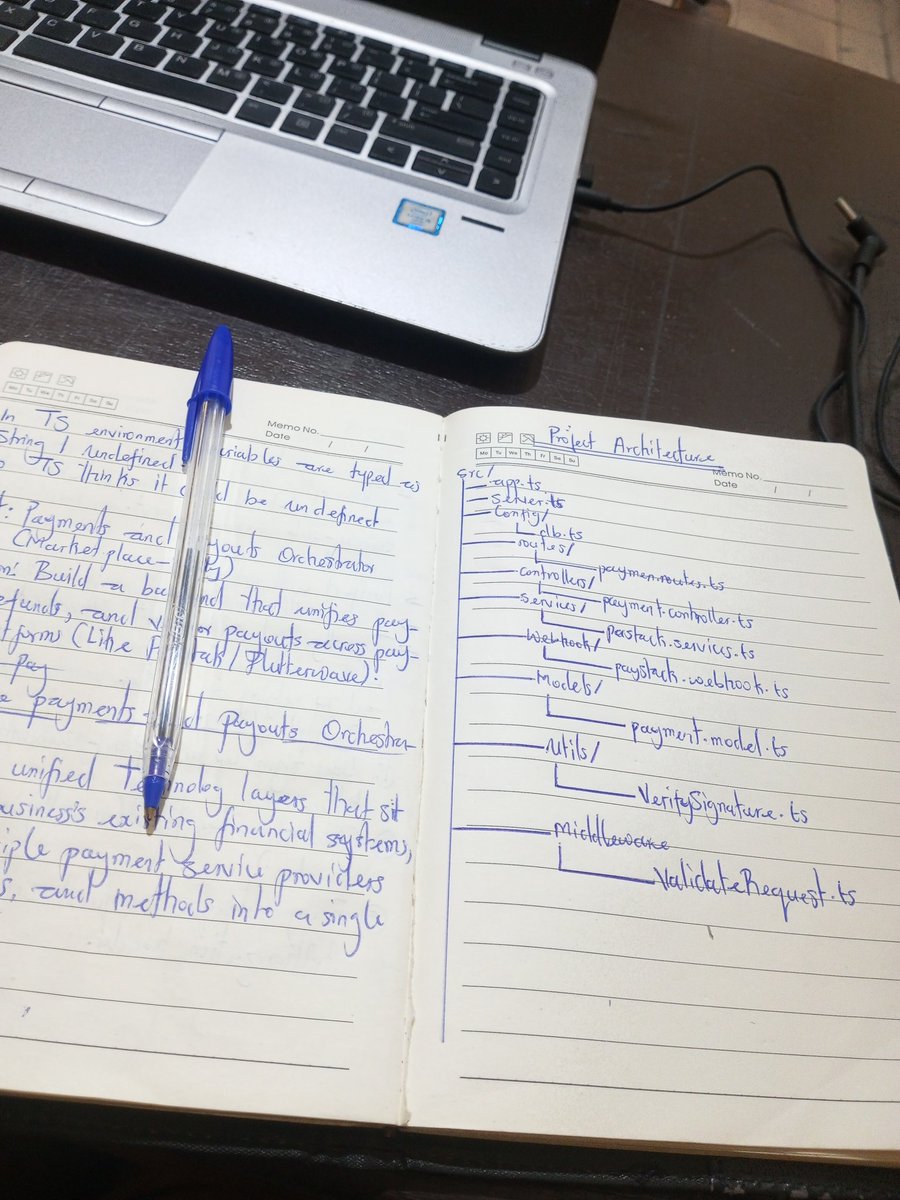 Mo Tu We Th Fr Sa Su
Memo No.
Date / /
In TS environment variables are typed as
string | undefined
TS thinks it could be undefined
: Payments and Payouts Orchestrator
(Marketplace-
: Build a that unifies pay-
efunds, and payouts across pay-
tforms (Like / Flutterwave).
Pay
e payments payouts Orchestra-
unified layers that sit
business's existing financial systems,
iple payment service providers
s, and methods into a single
Project Architecture
Mo Tu We Th Fr Sa Su
Memo No.
Date / /
src/
app.ts
server.ts
Config/
db.ts
routes/
paymen.routes.ts
controllers/
payment.controller.ts
services/
pastack.services.ts
Webhook/
paystack.webhook.ts
Models/
payment.model.ts
utils/
VerifySignature.ts
Middleware
ValidateRequest.ts